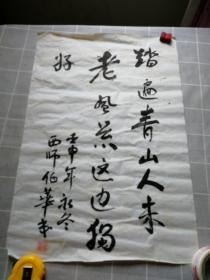 踏遍青山人未
老风景这边独
好
壬申年秋冬
西师伯华书